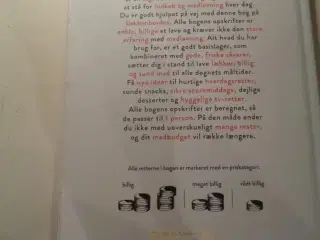 at stå for indkøb og madlavning hver dag.
Du er godt hjulpet på vej med denne bog på
køkkenbordet. Alle bogens opskrifter er
enkle, billige at lave og kræver ikke den store
erfaring med madlavning. Alt hvad du har
brug for, er et godt basislager, som
kombineret med gode, friske råvarer,
sætter dig i stand til lave lækker, billig
og sund mad til alle døgnets måltider.
Få nye ideer til hurtige hverdagsretter,
sunde snacks, sikre scoremiddage, dejlige
desserter og hyggelige tv-retter.
Alle bogens opskrifter er beregnet, så
de passer til 1 person. På den måde ender
du ikke med uoverskueligt mange rester,
og dit madbudget vil række længere.
Alle retterne i bogen er markeret med en priskategori:
billig
meget billig
vildt billig